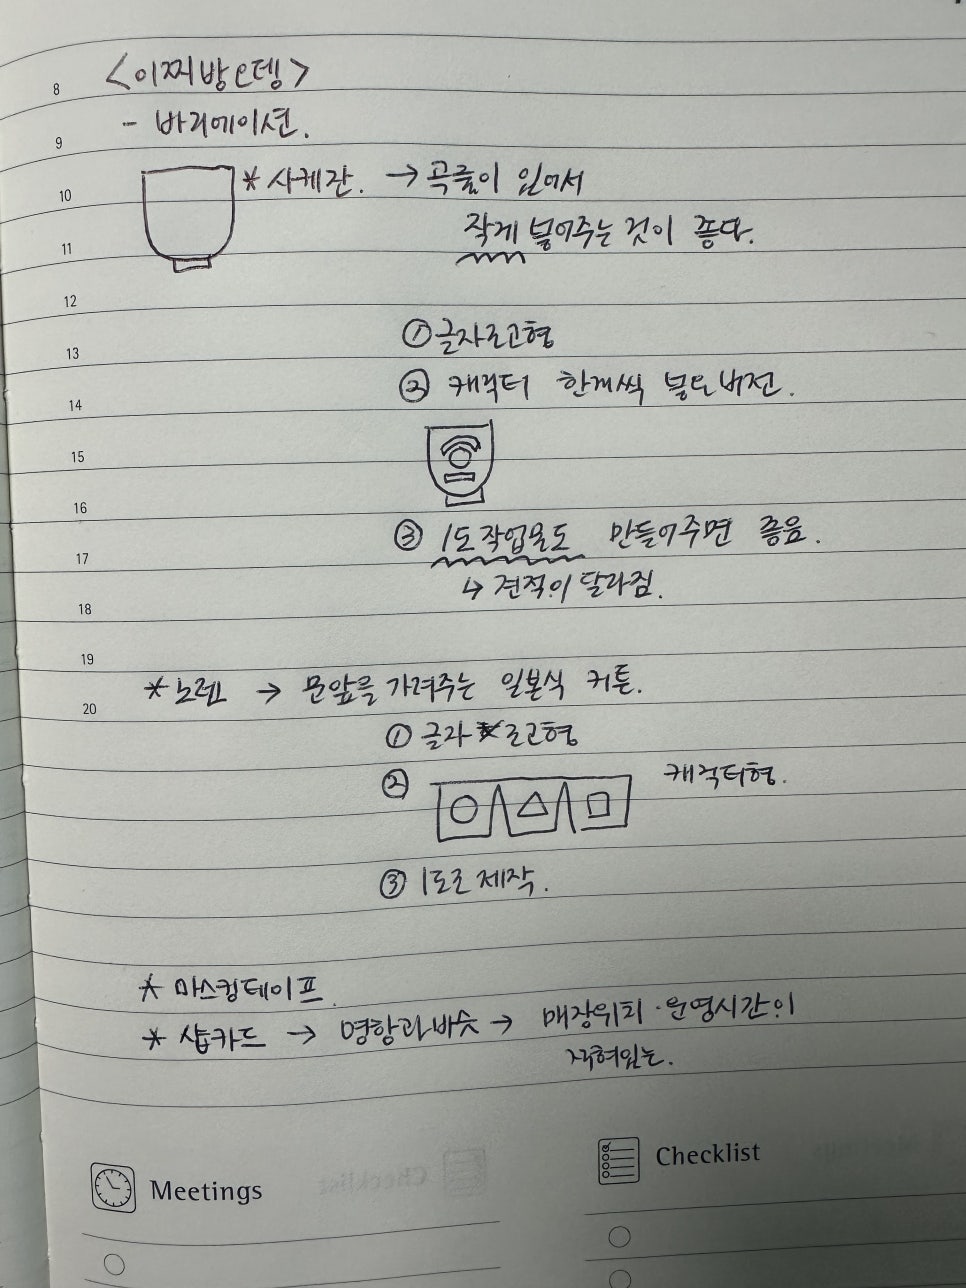 8 <이찌방오뎅>
9 - 바리에이션.
10 * 사케잔. → 곡률이 있어서
11 작게 넣어주는 것이 좋다.
12
13 ① 글자로고형
14 ② 캐릭터 한개씩 넣은 버전.
15
16
17 ③ 1도작업물도 만들어주면 좋음.
18 ↳ 견적이 달라짐.
19
20 * 노렌 → 문앞을 가려주는 일본식 커튼.
① 글자 로고형
② 캐릭터형.
③ 1도로 제작.
* 마스킹테이프.
* 샵카드 → 명함과 비슷 → 매장위치·운영시간이
적혀있는.
Meetings
Checklist